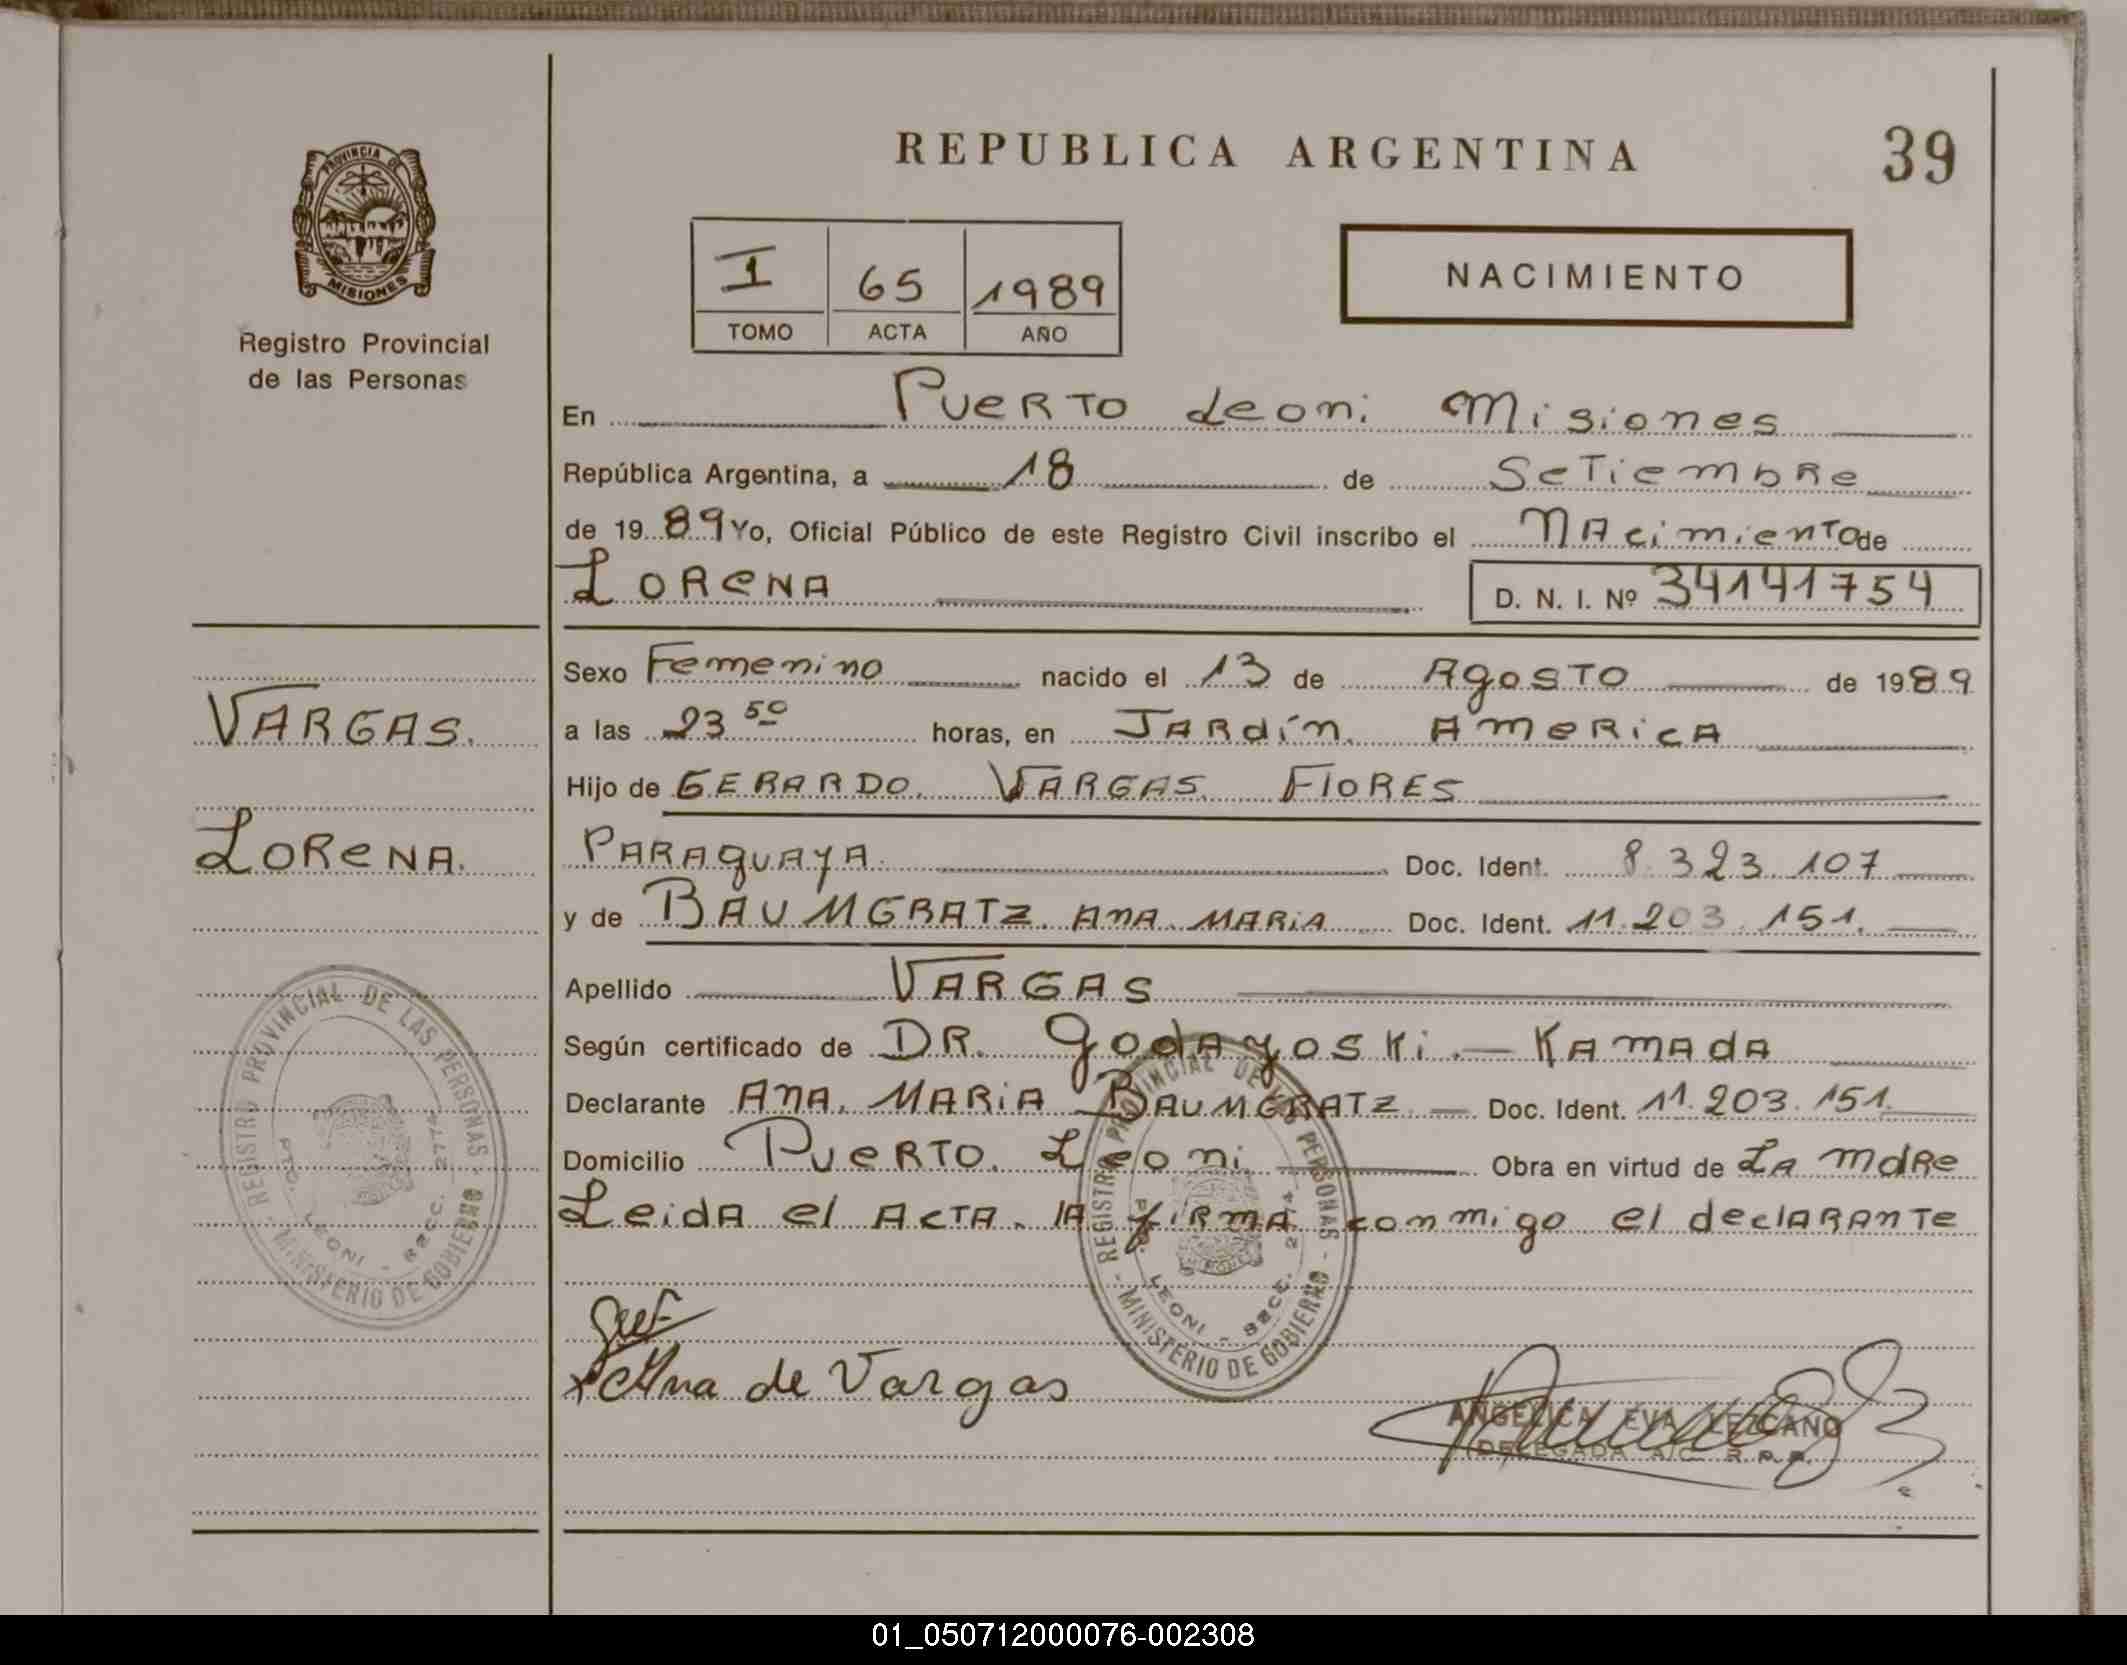 PROVINCIA DE
MISIONES
Registro Provincial
de las Personas
REPUBLICA ARGENTINA
39
I 65 1989
TOMO ACTA AÑO
NACIMIENTO
En Puerto Leoni Misiones
República Argentina, a 18 de Setiembre
de 1989 Yo, Oficial Público de este Registro Civil inscribo el Nacimiento de
Lorena
D. N. I. Nº 34141754
VARGAS.
LORENA.
Sexo Femenino nacido el 13 de Agosto de 1989
a las 23 50 horas, en Jardín America
Hijo de GERARDO VARGAS FlORES
PARAguAyA Doc. Ident. 8.323.107
y de BAUMGRATZ ANA MARiA Doc. Ident. 11.203.151.
Apellido VARGAS
Según certificado de DR. Godayoski - Kamada
Declarante ANA MARiA BAUMGRATZ Doc. Ident. 11.203.151.
Domicilio Puerto Leoni Obra en virtud de La mdre
Leida el Acta, la firma conmigo el declarante
Ana de Vargas
REGISTRO PROVINCIAL DE LAS PERSONAS - MINISTERIO DE GOBIERNO
PTO. LEONI - SECC. 2774
REGISTRO PROVINCIAL DE LAS PERSONAS - MINISTERIO DE GOBIERNO
LEONI - SECC. 2774
ANGELICA EVA LEZCANO
DELEGADA A/C R.P.P.
01_050712000076-002308